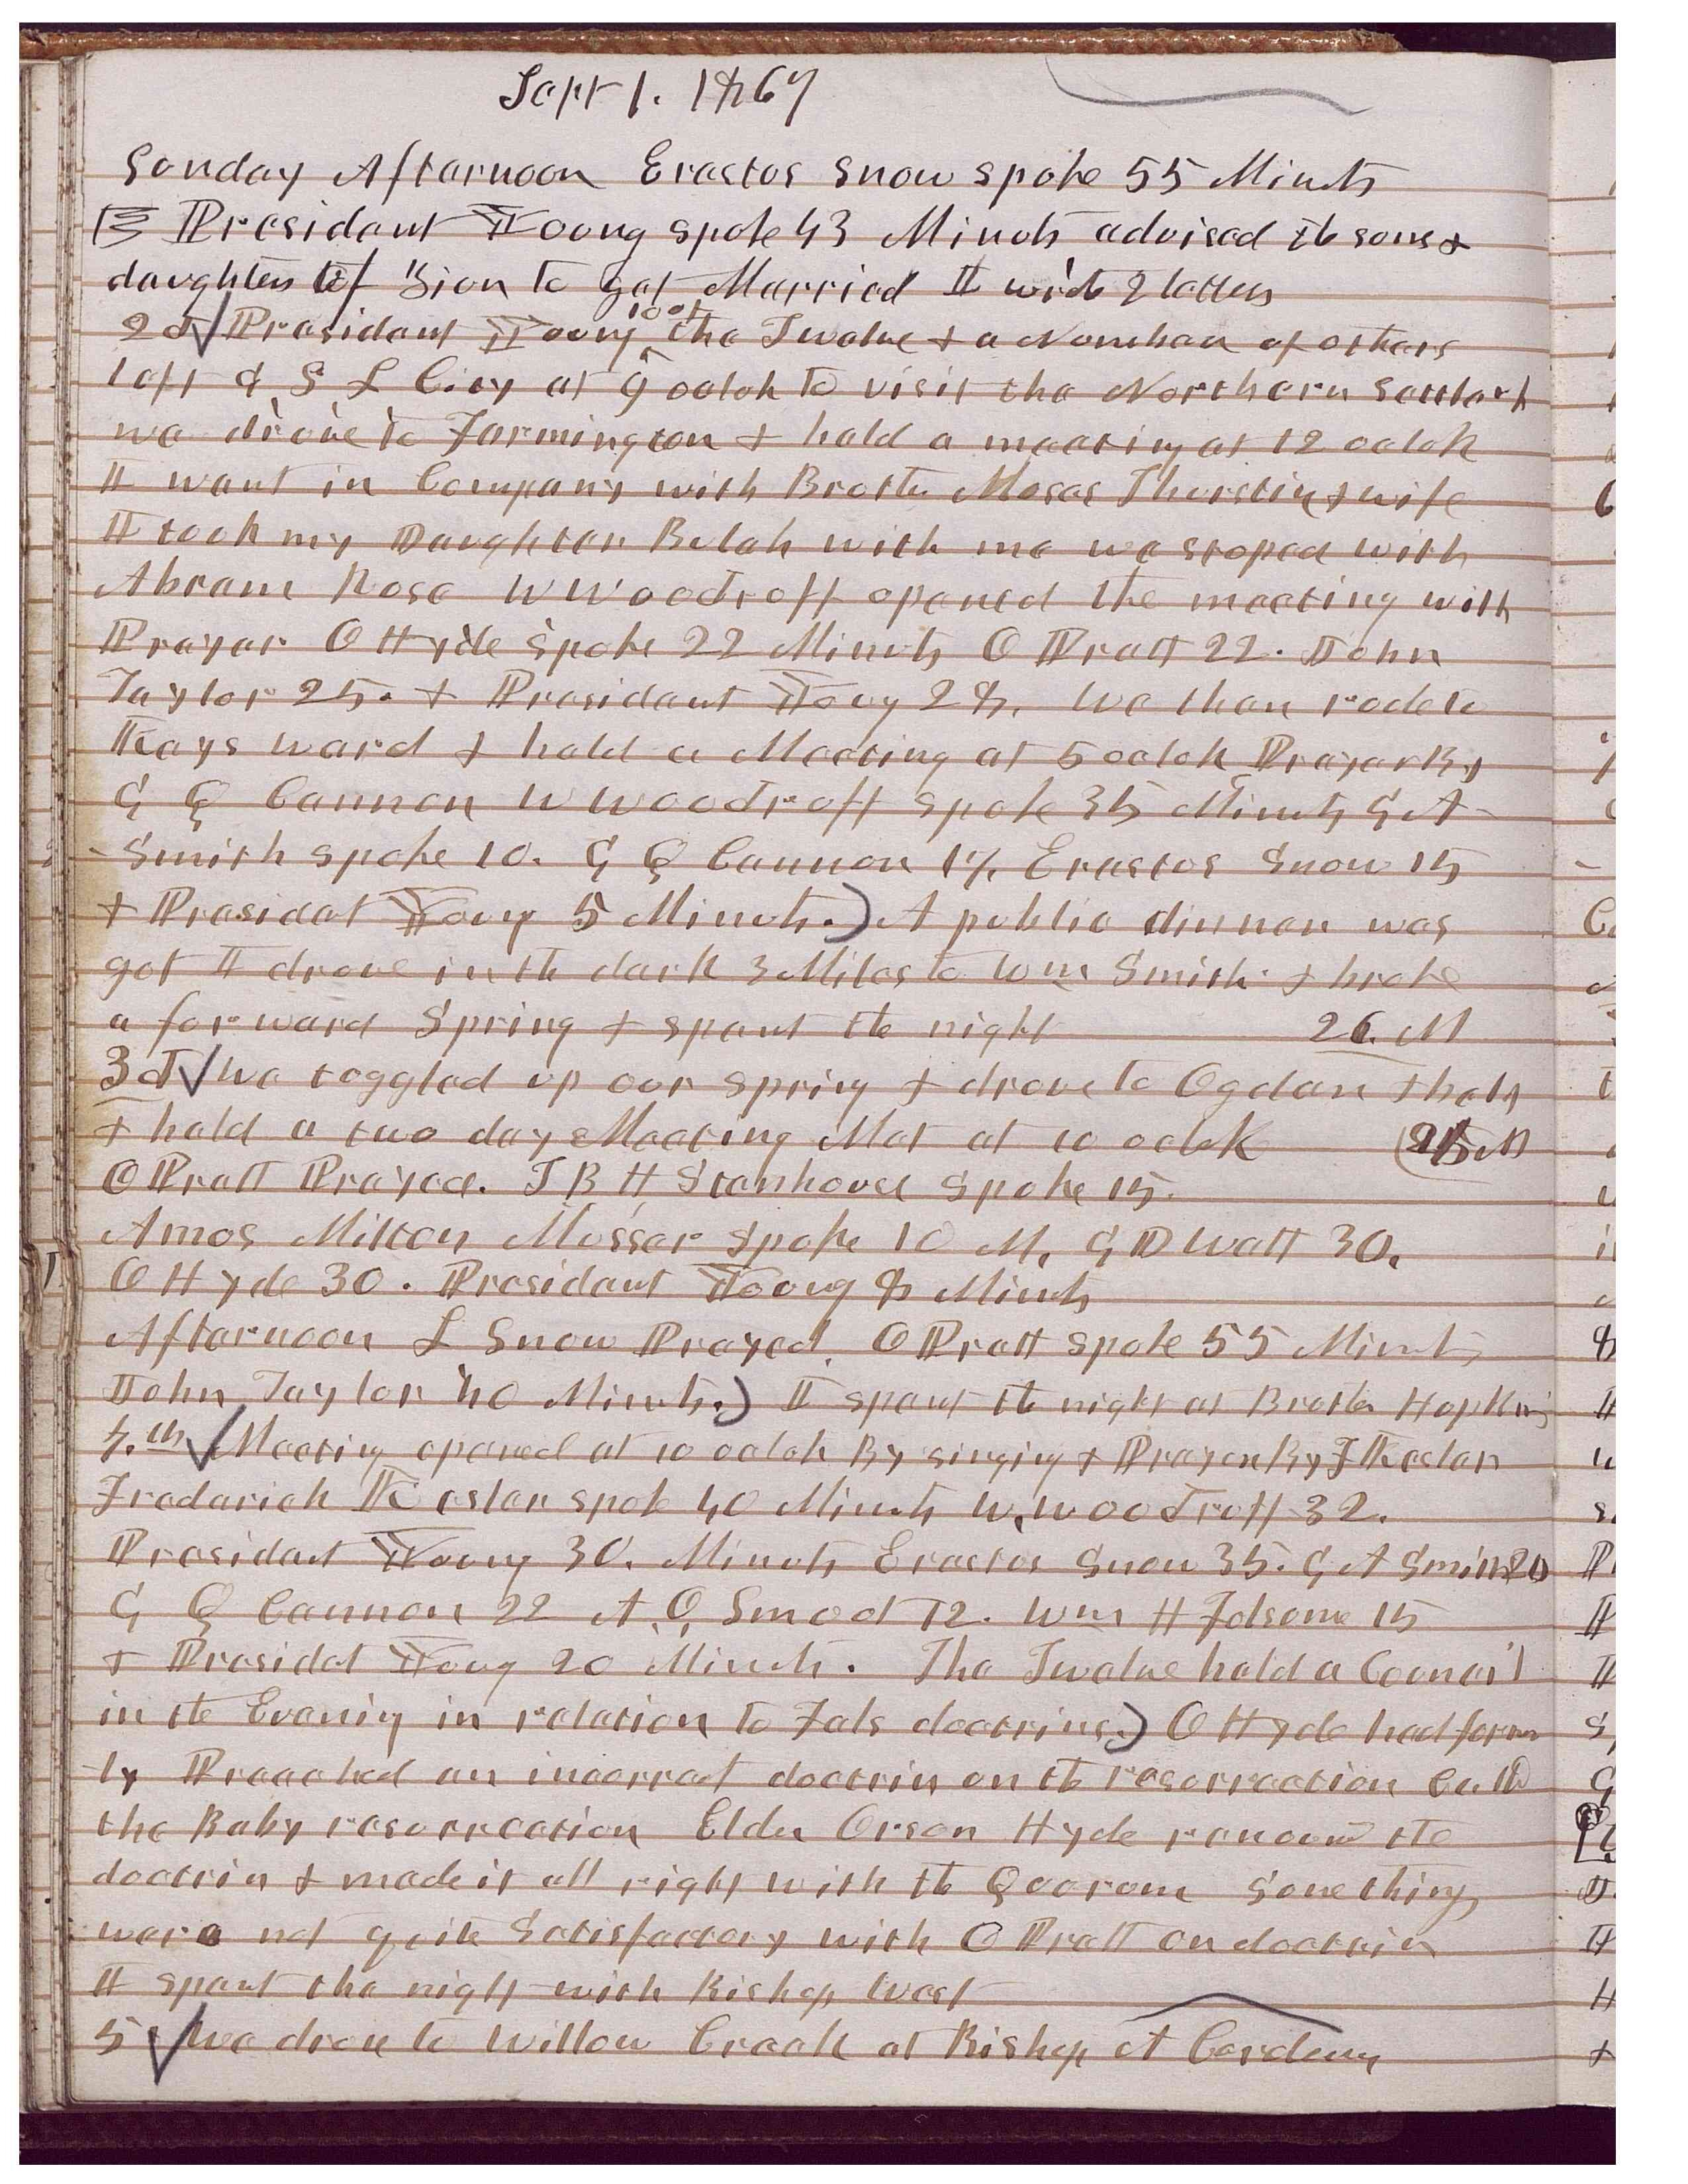 Sept 1. 1867
Sunday Afternoon Erastus Snow spoke 55 Minuts
President Young spoke 43 Minuts advised the sons &
daughters of Zion to get Married I wrote 2 letters
2d President Young 10 of the Twelve & a Number of others
left G S L City at 9 oclok to visit the Northern Settlemt
we drove to Farmington & held a meeting at 12 oclok
I went in Company with Brother Moses Thurstin & wife
I took my Daughter Bulah with me we stoped with
Abram Rose W Woodruff opened the meeting with
Prayer O Hyde spoke 22 Minuts O Pratt 22. John
Taylor 25. & President Young 28. We then rode to
Kays ward & held a Meeting at 5 oclok Prayer By
G Q Cannon W Woodruff spoke 35 Minuts G A
Smith spoke 10. G Q Cannon 17, Erastus Snow 15
& Presidet Young 5 Minuts. A public dinner was
got I drove in the dark 3 Miles to Wm Smith & broke
a forward Spring & spent the night 26. M
3d We toggled up our spring & drove to Ogden
& held a two days Meeting Met at 10 oclok 15 M
O Pratt Prayed. T B H Stanhouse Spoke 15.
Amos Milton Musser spoke 10 M, G D Watt 30.
O Hyde 30. President Young 8 Minuts
Afternoon L Snow Prayed. O Pratt spoke 55 Minuts
John Taylor 40 Minuts. I spent the night at Brother Hopkins
4th Meeting opened at 10 oclok By singing & Prayer By F Kesler
Frederick Kesler spoke 40 Minuts W. Woodruff 32.
President Young 30. Minuts Erastus Snow 35. G A Smith 20
G Q Cannon 22 A. O, Smoot 12. Wm H Folsome 15
& Presidet Young 20 Minuts. The Twelve held a Council
in the Evening in relation to Fals doctrins. O Hyde had former
ly Preached an incorrect doctrin on the resurrection Called
the Baby resurrection Elder Orson Hyde renounced the
doctrin & made it all right with the Quorum Some things
were not quite Satisfactory with O Pratt on doctrin
I spent the night with Bishop West
5 We drove to Willow Creek at Bishop A Cordon